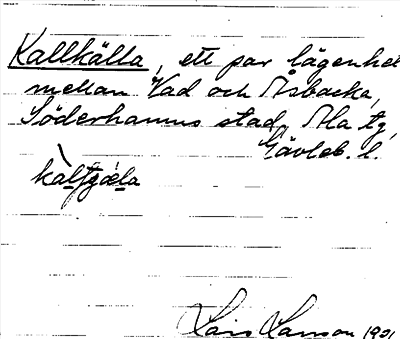 Kallkälla, ett par lägenhet
mellan Vad och Åsbacka,
Söderhamns stad, Ala tg,
Gävleb. l.
kàlɟɟæla
Lars Larsson 1921